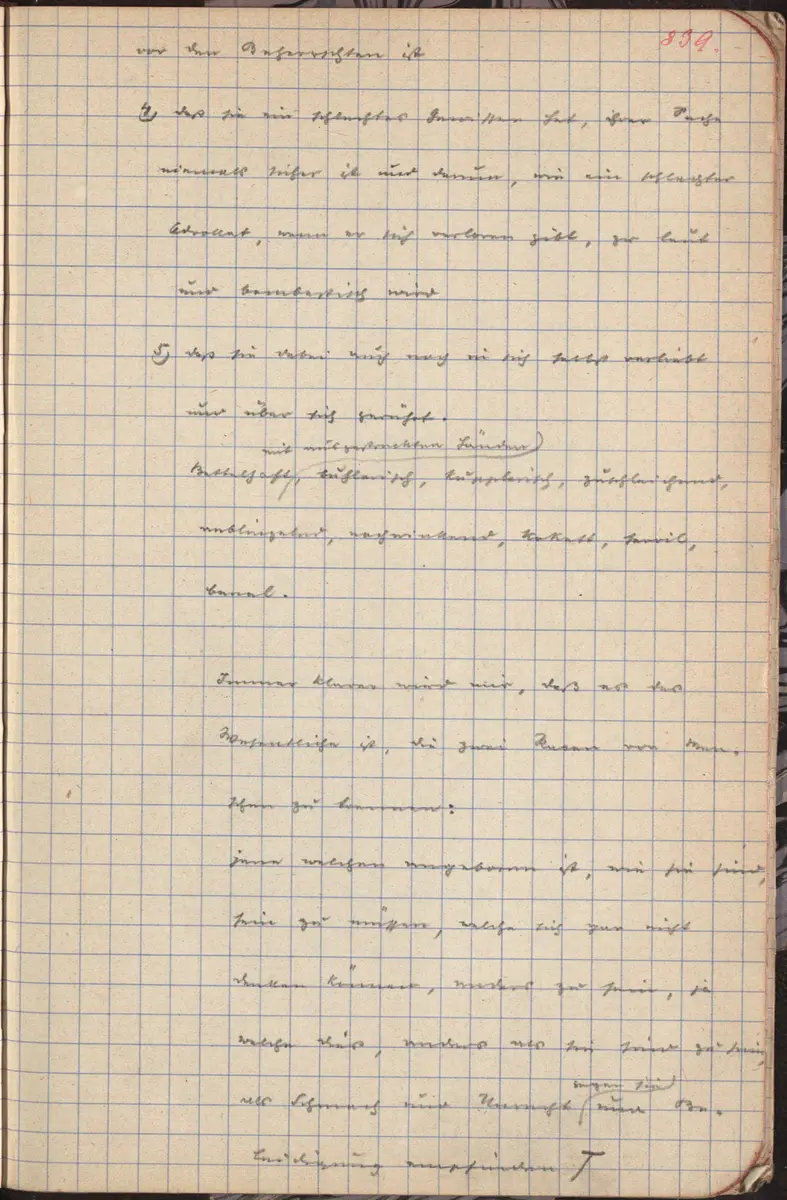 839.
vor den Beherrschten ist
4) daß sie ein schlechtes Gewissen hat, ihrer Sache
niemals sicher ist und darum, wie ein schlechter
Advokat, wenn er sich verloren gibt, zu laut
und bombastisch wird
5) daß sie dabei auch noch in sich selbst verliebt
und über sich gerührt.
mit ausgestreckten Händen
Bettelhaft, buhlerisch, kupplerisch, zuschleichend,
anblinzelnd, nachwinkend, kokett, servil,
banal.
Immer klarer wird mir, daß es das
Wesentliche ist, die zwei Rassen von Men-
schen zu trennen:
jene welchen angeboren ist, wie sie sind,
sein zu müssen, welche sich gar nicht
denken können, anders zu sein, ja
welche dies, anders als sie sind zu sein,
gegen sie
als Schmach und Unrecht und Be-
leidigung empfinden